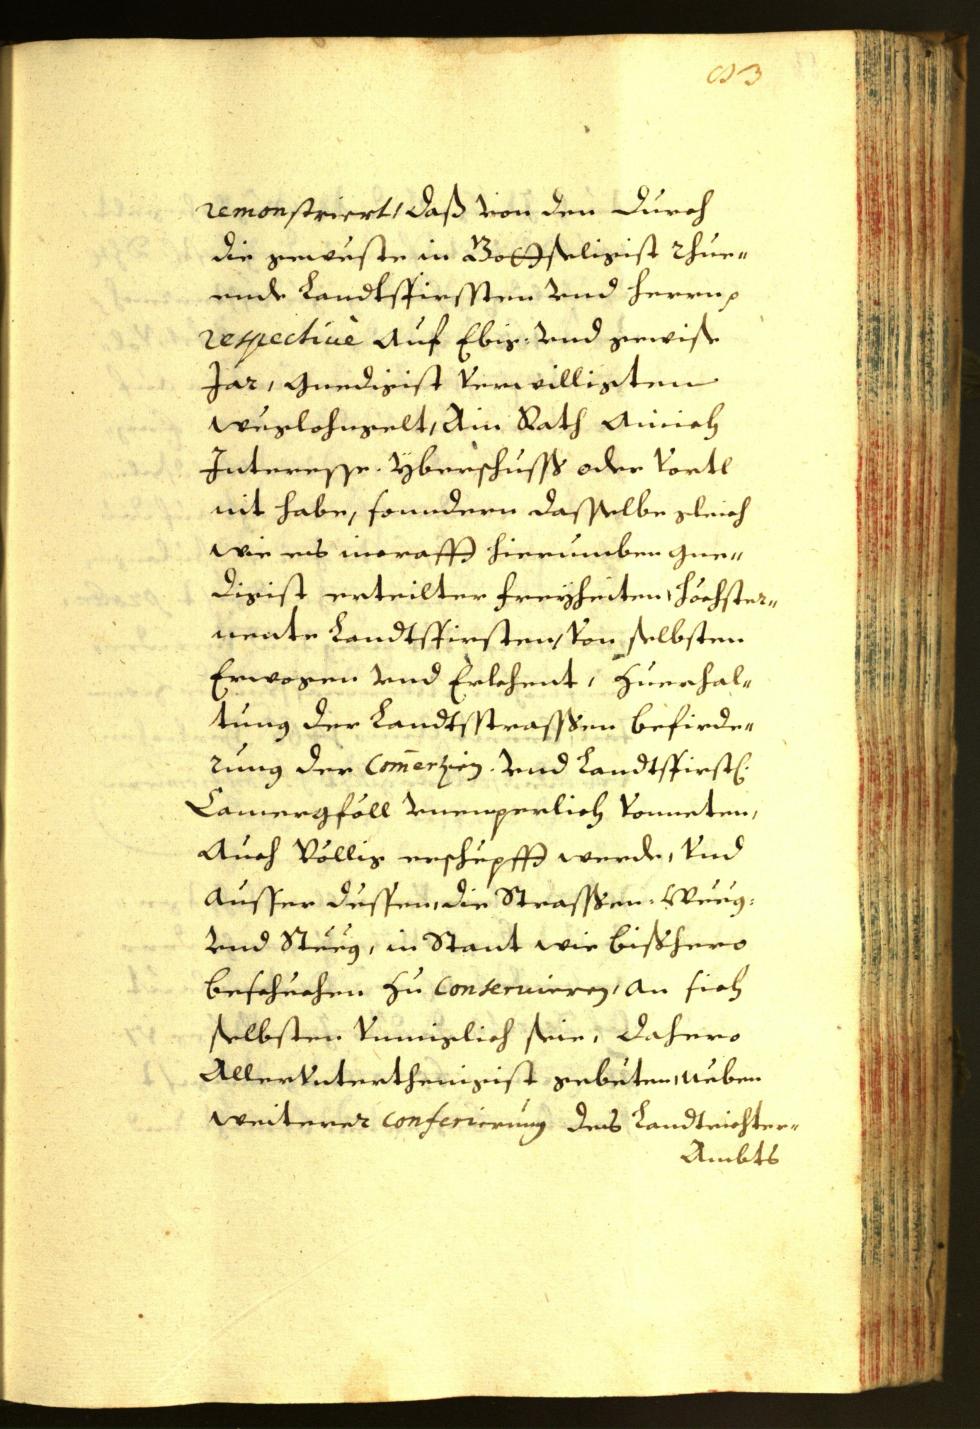 remonstriert, daß von den durch
die geweste in Gottseligist rhue„
ende Landtsfirssten vnd herrn,
respectiuè auf Ebig: vnd gewisse
Jar, gnedigist verwilligten
weglohngelt, Ain Rath ainich
Interesse. Yberschusss oder Vortl
nit habe, sonndern dasselbe gleich
wie es in crafft hierumben gne„
digist erteilter freyheiten, höchster„
nente Landtsfirsten, von selbsten
Erwogen vnd Erkhent, zu erhal„
tung der Landtsstrasssen befirde„
rung der Comerzien. vnd Landtsfirstl:
Camergföll vnenperlich vonneten,
Auch völlig erschepfft werde, vnd
ausser dessen, die Strasssen: Weeg:
vnd Steeg, in Stant wie bißhero
beschechen zu conseruieren, an sich
selbsten vnmiglich seie, dahero
Allervnterthenigist gebeten, neben
weiterer conferierung des Landtrichter„
Ambts